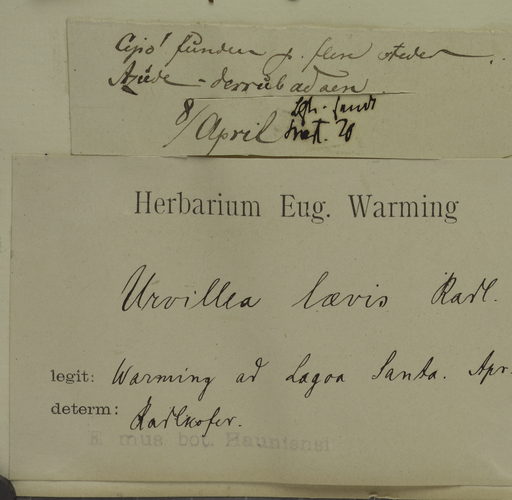 Cipó! funden p. flere steder
Açúde - derrubadaen.
8/April
Herbarium Eug. Warming
Urvillea lævis Radl.
legit: Warming ad Lagoa Santa. Apr.
determ: Radlkofer.
E mus. bot. Hauniensi.